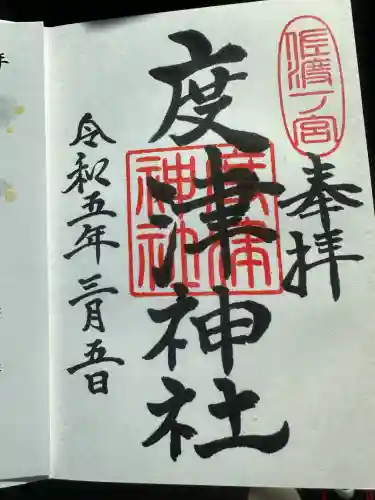 佐渡一ノ宮
奉拝
度津神社
度津神社
令和五年三月五日